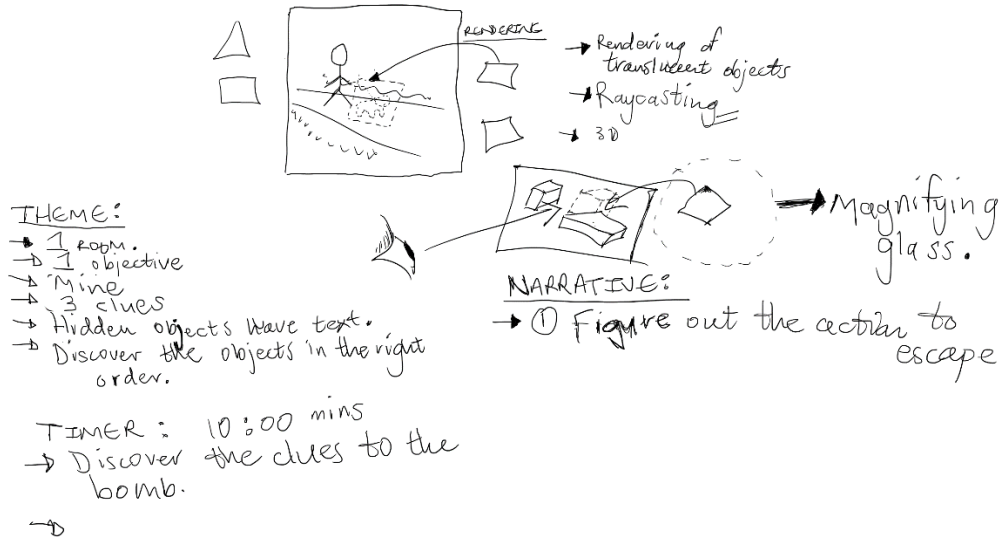 RENDERING
→ Rendering of
translucent objects
→ Raycasting
→ 3D
→ Magnifying
glass.
THEME:
→ 1 ROOM.
→ 1 objective
→ Mine
→ 3 clues
→ Hidden objects have text.
→ Discover the objects in the right
order.
NARRATIVE:
→ ① Figure out the action to
escape
TIMER: 10:00 mins
→ Discover the clues to the
bomb.
→